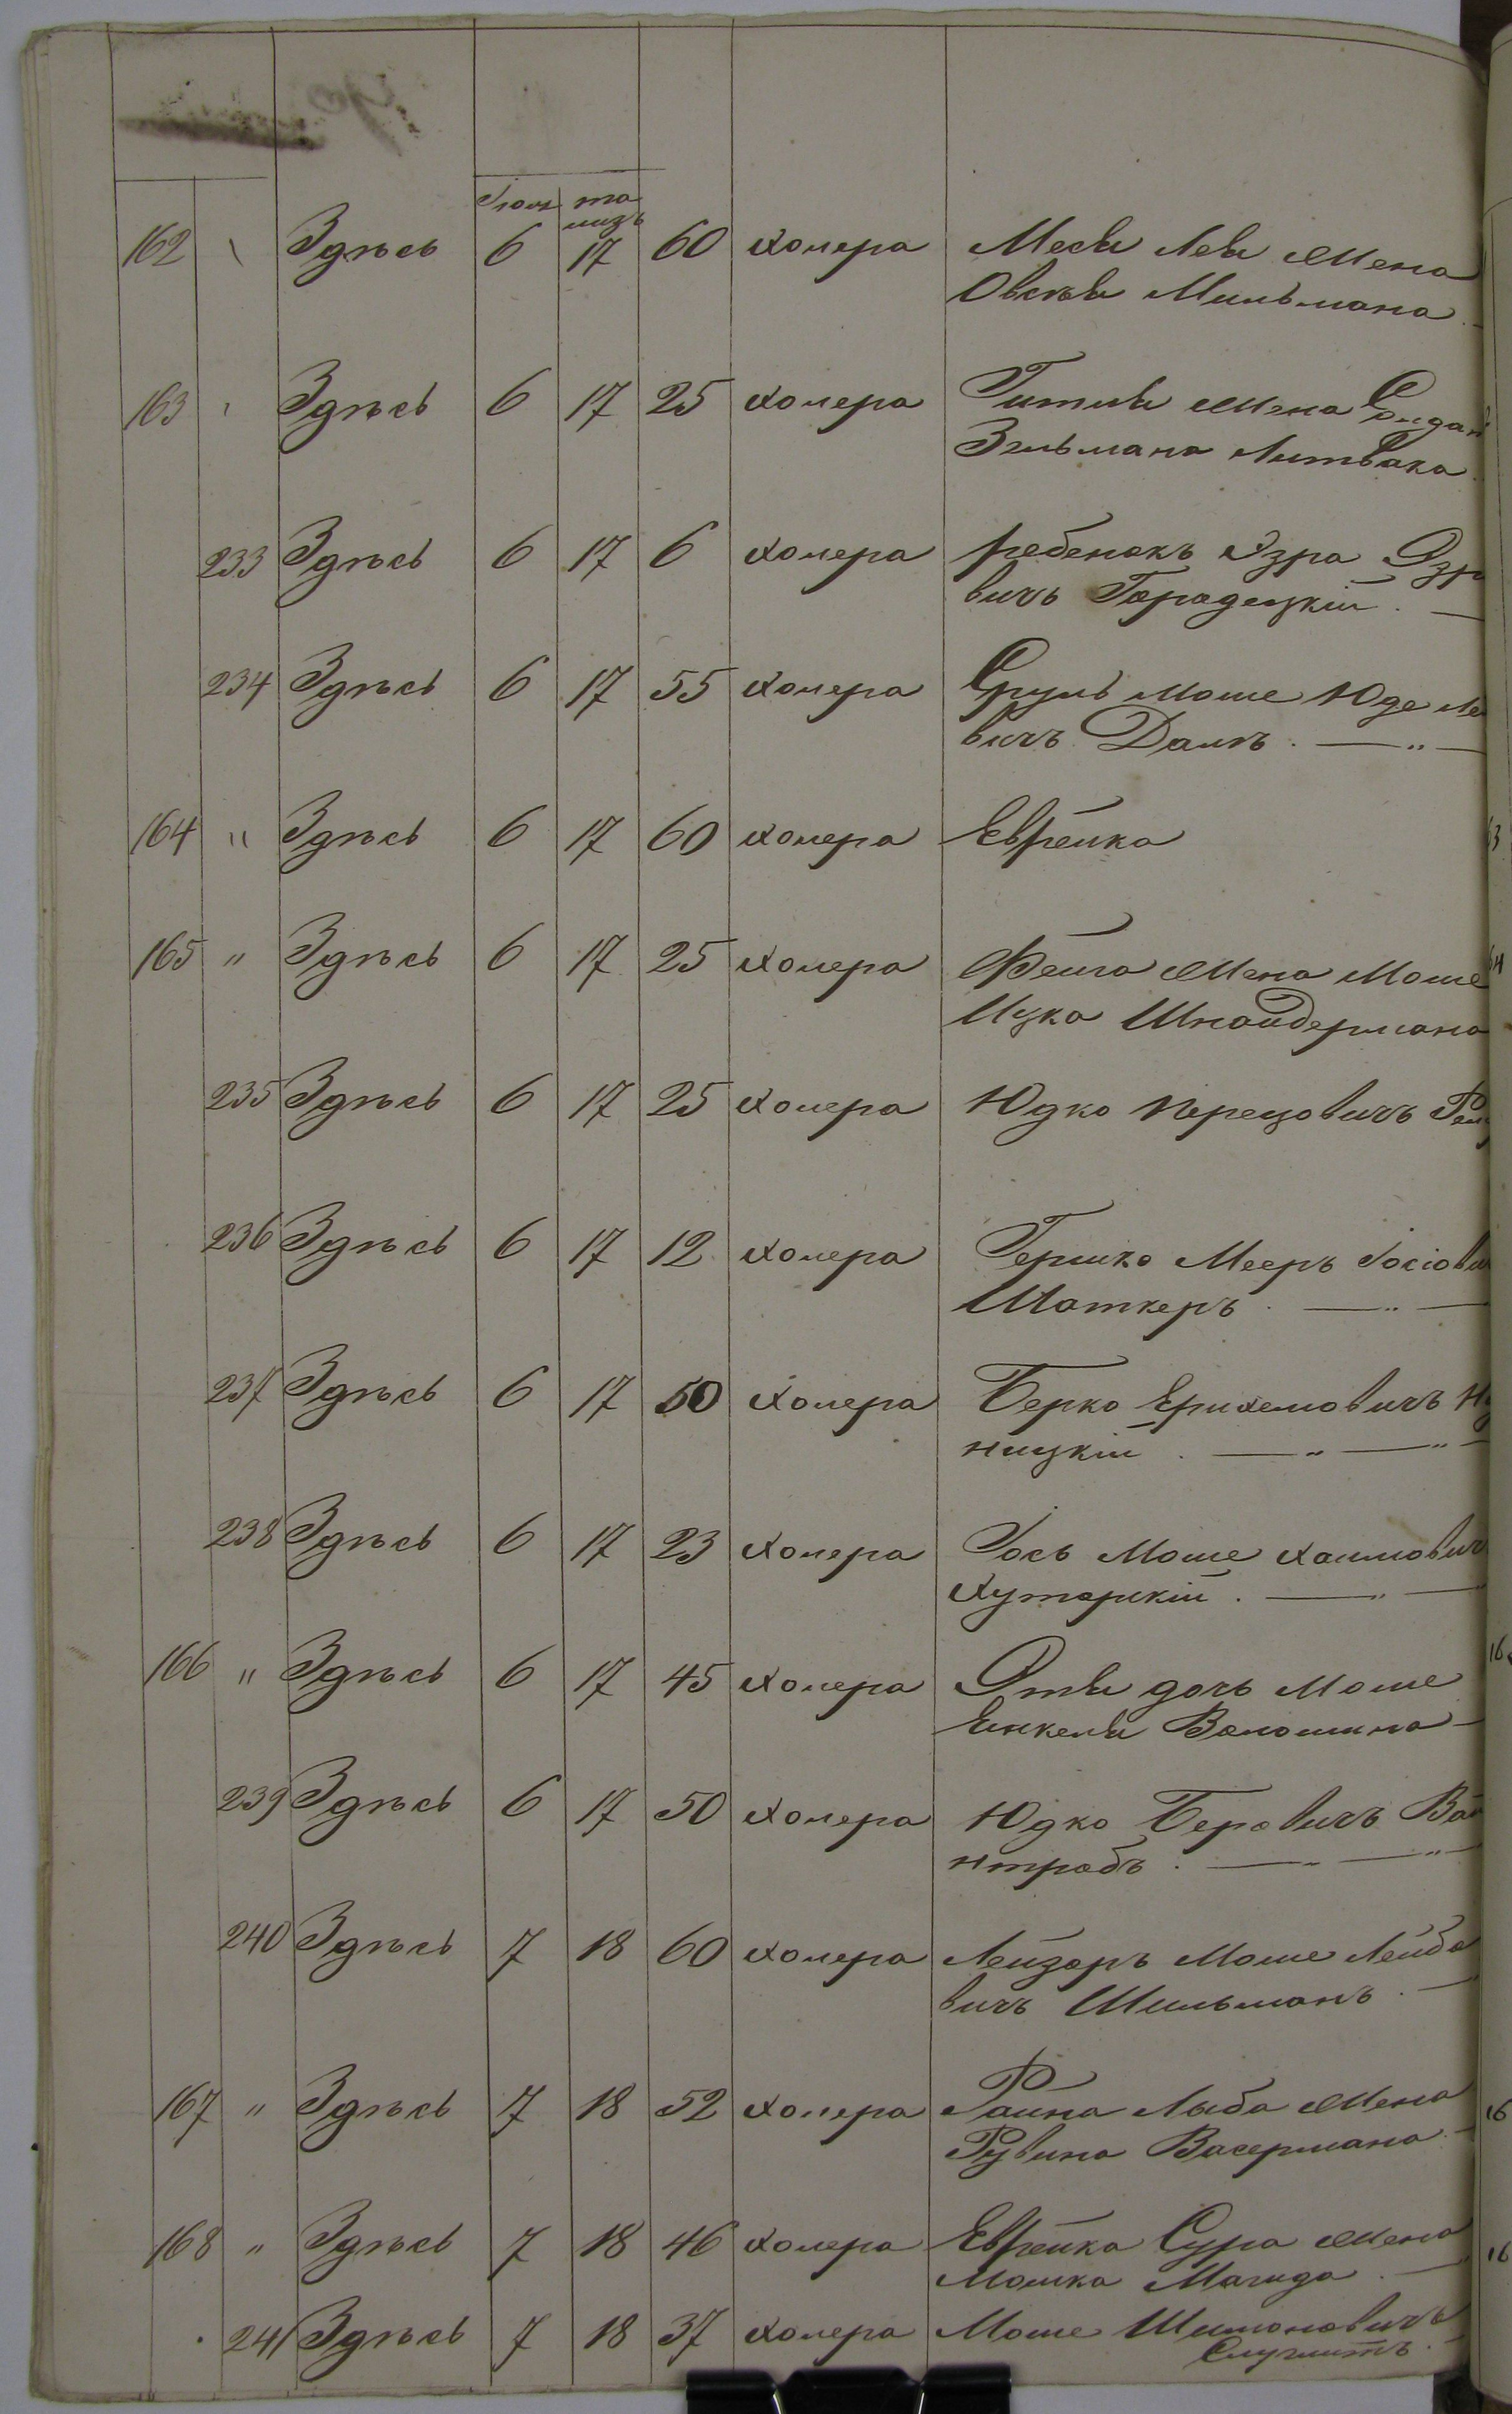 Іюль та
мизъ
162 Здѣсь 6 17 60 холера Меси Леи жена
Овсѣи Мильмана
163 Здѣсь 6 17 25 холера Гитли жена
Зельмана Литвака
233 Здѣсь 6 17 6 холера ребенокъ Эзра
вичъ Городецкій
234 Здѣсь 6 17 55 холера Сруль Моше Юделе
вичъ
164 " Здѣсь 6 17 60 холера Еврейка
165 " Здѣсь 6 17 25 холера Фейга жена Моше
Ицка Шнайдермана
235 Здѣсь 6 17 25 холера Юдко Перецовичъ
236 Здѣсь 6 17 12 холера Гершко Мееръ Іосіови
Шаткеръ
237 Здѣсь 6 17 50 холера Берко Ерихемовичъ
ницкій
238 Здѣсь 6 17 23 холера Іось Моше Хаимович
Хуторскій
166 " Здѣсь 6 17 45 холера Эти дочь Моше
Енкеля Волошина
239 Здѣсь 6 17 50 холера Юдко Беровичъ Вай
нтробъ
240 Здѣсь 7 18 60 холера Лейзоръ Моше Лейбо
вичъ Шильманъ
167 " Здѣсь 7 18 52 холера Райна Лыба жена
Рувина Васермана
168 " Здѣсь 7 18 46 холера Еврейка Сура жена
Мошка Магида
241 Здѣсь 7 18 37 холера Моше Шимоновичъ